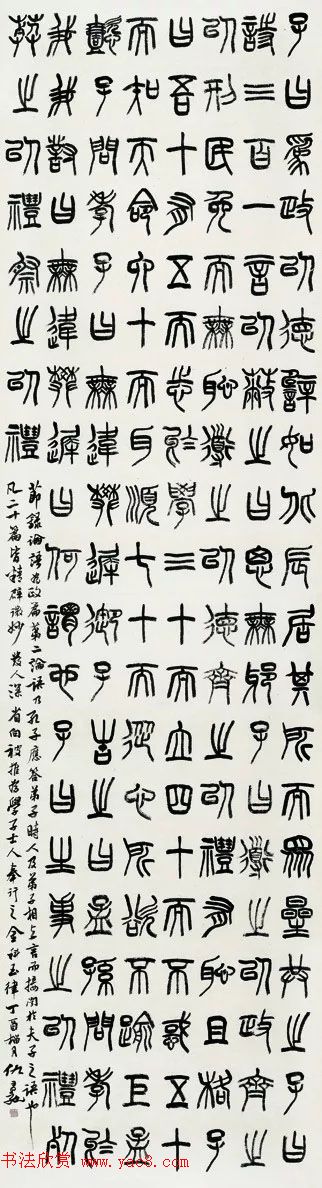 子曰為政以德譬如北辰居其所而眾星共之子曰
詩三百一言以蔽之曰思無邪子曰道之以政齊之
以刑民免而無恥道之以德齊之以禮有恥且格子
曰吾十有五而志於學三十而立四十而不惑五十
而知天命六十而耳順七十而從心所欲不踰巨孟
懿子問孝子曰無違樊遲御子告之曰孟孫問孝於
我我對曰無違樊遲曰何謂也子曰生事之以禮死
葬之以禮祭之以禮
節錄論語為政篇第二論語乃孔子應答弟子時人及弟子相與言而接聞於夫子之語也
凡二十篇皆精辟微妙發人深省向被推為學子士人奉行之金科玉律丁酉臘月
书法欣赏 www.yac8.com